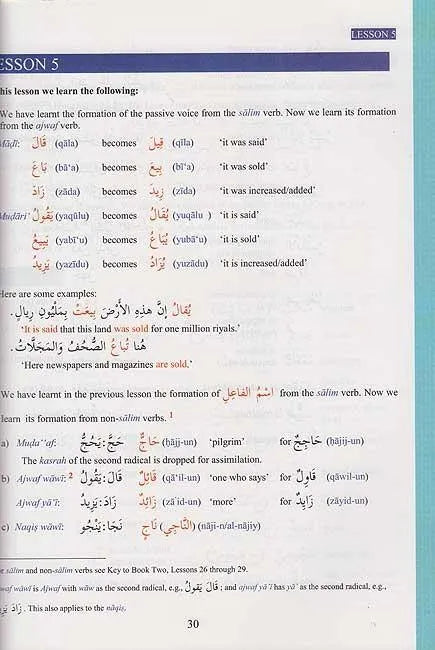 LESSON 5
ESSON 5
his lesson we learn the following:
We have learnt the formation of the passive voice from the sālim verb. Now we learn its formation
from the ajwaf verb.
Māḍī: قَالَ (qāla) becomes قِيلَ (qīla) ‘it was said’
بَاعَ (bā‘a) becomes بِيعَ (bī‘a) ‘it was sold’
زَادَ (zāda) becomes زِيدَ (zīda) ‘it was increased/added’
Muḍāri‘ يَقُولُ (yaqūlu) becomes يُقَالُ (yuqālu ) ‘it is said’
يَبِيعُ (yabī‘u) becomes يُبَاعُ (yubā‘u) ‘it is sold’
يَزِيدُ (yazīdu) becomes يُزَادُ (yuzādu) ‘it is increased/added’
Here are some examples:
يُقالُ إنَّ هذِهِ الأَرْضَ بِيعَتْ بِمَلْيُونِ رِيالٍ.
‘It is said that this land was sold for one million riyals.’
هُنا تُباعُ الصُّحُفُ وَالمَجَلَّاتُ.
‘Here newspapers and magazines are sold.’
We have learnt in the previous lesson the formation of اسْمُ الفاعِلِ from the sālim verb. Now we
learn its formation from non-sālim verbs. 1
a) Muḍa‘‘af: حَجَّ: يَحُجُّ حَاجٌّ (ḥājj-un) ‘pilgrim’ for حَاجِجٌ (ḥājij-un)
The kasrah of the second radical is dropped for assimilation.
b) Ajwaf wāwī: 2 قَالَ: يَقُولُ قَائِلٌ (qā’il-un) ‘one who says’ for قَاوِلٌ (qāwil-un)
Ajwaf yā’ī: زَادَ: يَزِيدُ زَائِدٌ (zā’id-un) ‘more’ for زَايِدٌ (zāyid-un)
c) Naqiṣ wāwī: نَجَا: يَنْجُو نَاجٍ (النَّاجِي) (nāji-n/al-nājiy)
r sālim and non-sālim verbs see Key to Book Two, Lessons 26 through 29.
waf wāwī is Ajwaf with wāw as the second radical, e.g., قَالَ يَقُولُ ; and ajwaf yā’ī has yā’ as the second radical, e.g.,
زَادَ يَزِيدُ . This also applies to the nāqiṣ.
30